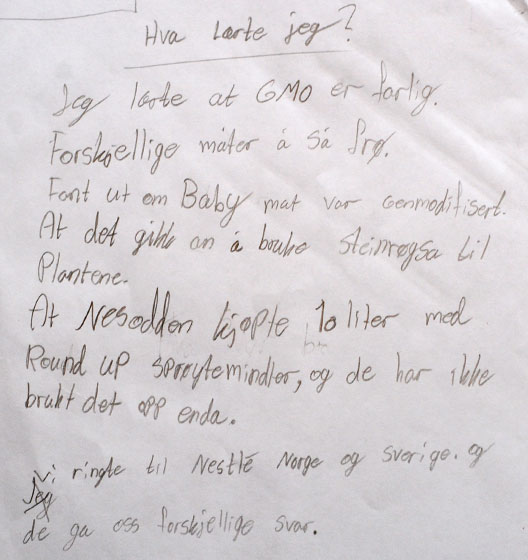 Hva lærte jeg?
Jeg lærte at GMO er farlig.
Forskjellige måter å så frø.
Fant ut om Baby mat var Genmodifisert.
At det gikk an å bruke Steinrøgsa til
Plantene.
At Nesodden kjøpte 10 liter med
Round up sprøytemindler, og de har ikke
brukt det opp enda.
Vi ringte til Nestlé Norge og Sverige. og
de ga oss forskjellige svar.